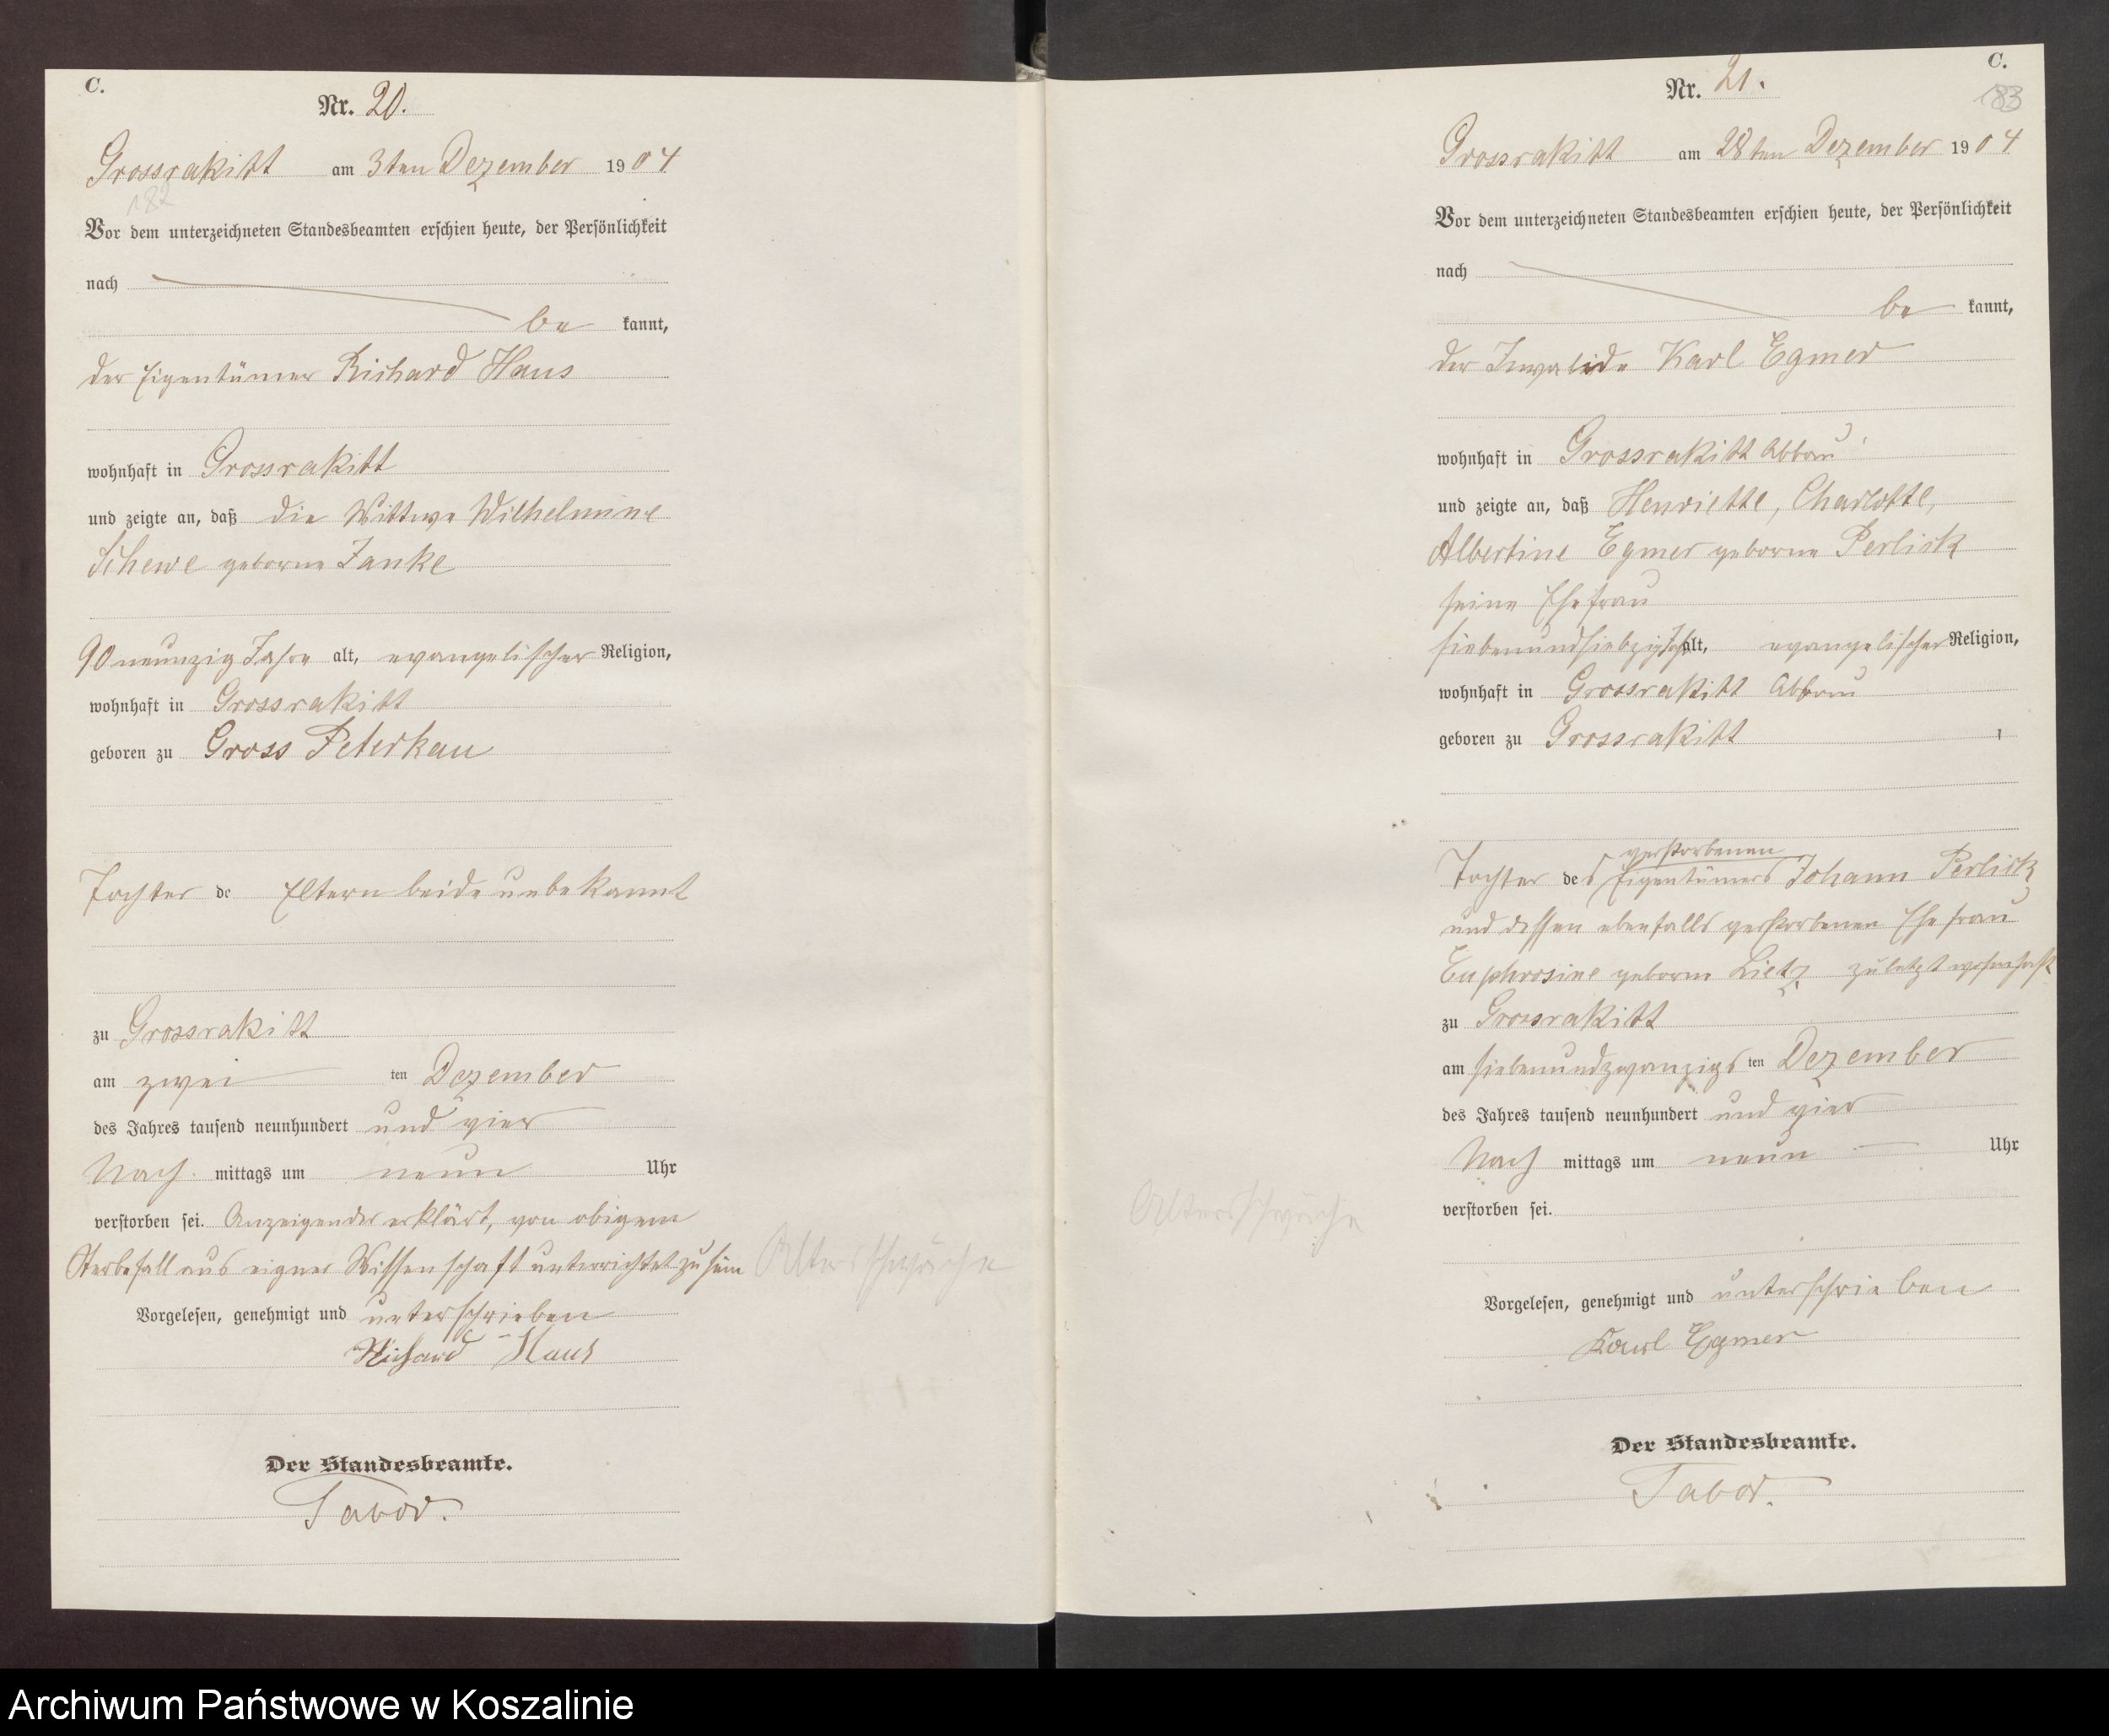 C.
Nr. 20.
Grossrakitt am 3ten Dezember 1904
182
Vor dem unterzeichneten Standesbeamten erschien heute, der Persönlichkeit
nach
be kannt,
der Eigentümer Richard Haus
wohnhaft in Grossrakitt
und zeigte an, daß die Wittwe Wilhelmine
Schewe geborne Janke
90 neunzig Jahre alt, evangelischer Religion,
wohnhaft in Grossrakitt
geboren zu Gross Peterkau
Tochter de Eltern beide unbekannt
zu Grossrakitt
am zwei ten Dezember
des Jahres tausend neunhundert und vier
Nach mittags um neun Uhr
verstorben sei. Anzeigender erklärt, von obigem
Sterbefall aus eigner Wissenschaft unterrichtet zu sein
Altersschwäche
Vorgelesen, genehmigt und unterschrieben
Richard Haus
Der Standesbeamte.
Tabor.
C.
183
Nr. 21.
Grossrakitt am 28ten Dezember 1904
Vor dem unterzeichneten Standesbeamten erschien heute, der Persönlichkeit
nach
be kannt,
der Invalide Karl Egmer
wohnhaft in Grossrakitt Abbau
und zeigte an, daß Henriette, Charlotte,
Albertine Egmer geborne Perlick
seine Ehefrau
siebenundsiebzig Jahr alt, evangelischer Religion,
wohnhaft in Grossrakitt Abbau
geboren zu Grossrakitt
verstorbenen
Tochter des Eigentümers Johann Perlick
und dessen ebenfalls verstorbenen Ehefrau
Euphrosine geborne Lietz zuletzt wohnhaft
zu Grossrakitt
am siebenundzwanzigs ten Dezember
des Jahres tausend neunhundert und vier
Nach mittags um neun Uhr
verstorben sei.
Altersschwäche
Vorgelesen, genehmigt und unterschrieben
Karl Egmer
Der Standesbeamte.
Tabor.
Archiwum Państwowe w Koszalinie